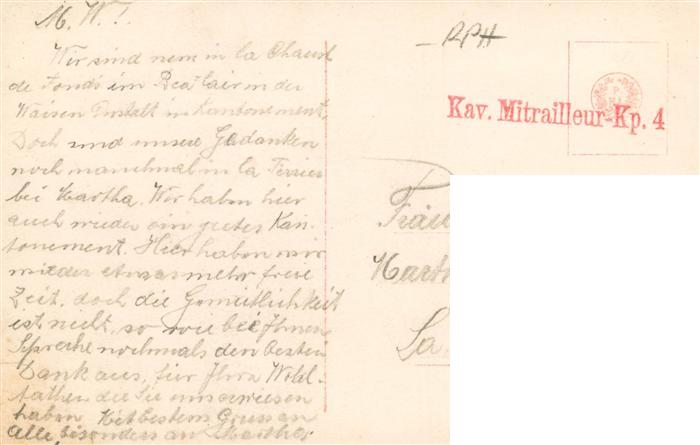 M. W.!
Wir sind nem in la Chaux
de Fonds im Bea Cair in der
Waisen Anstalt in Kantonement.
Doch sind unsere Gedanken
noch manchmal in la Ferrier
bei Martha. Wir haben hier
auch wieder ein gutes Kan-
tonement. Hier haben wir
wieder etwas mehr freie
Zeit, doch die Gemütlichkeit
ist nicht, so wie bei Ihnen
Spreche nochmals den besten
Dank aus, für Ihre Wohl-
taten die Sie uns erwiesen
haben. Mit bestem Gruss an
alle, bisonders an Martha.
RPH
Kav. Mitrailleur-Kp. 4
Fräu
Marth
La